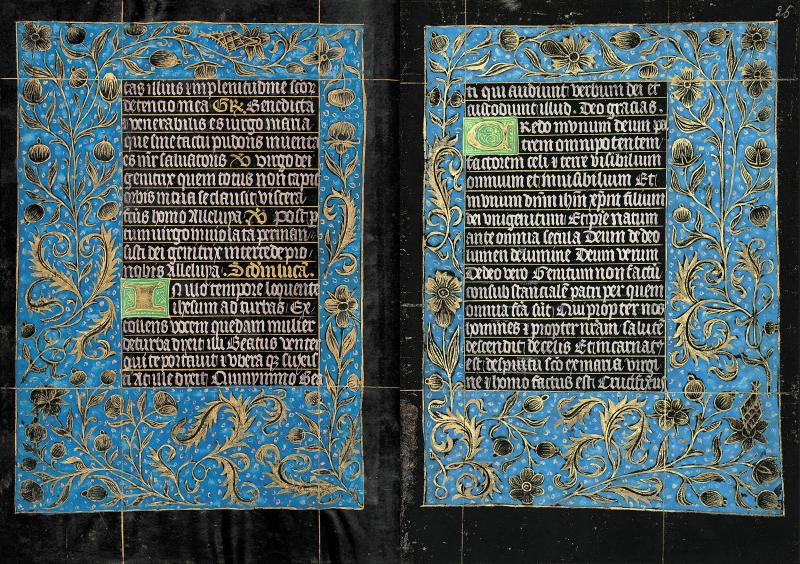 tas illius in plenitudine scor
detentio mea GR Benedicta
venerabilis es virgo maria
que sine tactu pudoris inventa
es mr salvatoris V virgo dei
genitrix quem totus non capit
orbis in tua se clausit viscera
factus homo Alleluya V post p
tum virgo inviolata perman
sisti dei genitrix intercede pro
nobis Alleluya. Scdm luca.
In illo tempore loquente
ihesum ad turbas Ex
tollens vocem quedam mulier
de turba dixit illi Beatus venter
qui te portavit et ubera que suxis
ti At ille dixit Quinymmo Bea
26
ti qui audiunt verbum dei et
custodiunt illud. Deo gracias.
Credo in unum deum pa
trem omnipotentem
factorem celi et terre visibilium
omnium et invisibilium Et
in unum dnm ihm xpm filium
dei unigenitum Et ex pre natum
ante omnia secula Deum de deo
lumen de lumine Deum verum
De deo vero Genitum non factu
consubstancialem patri per quem
omnia fca sut Qui propter nos
homines et propter nram salute
descendit de celis Et incarnat
est de spiritu sco ex maria virgi
ne et homo factus est Crucifixus